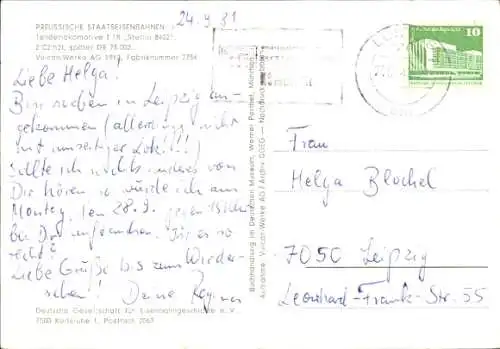 24.9.81
PREUSSISCHE STAATSEISENBAHNEN
Tenderlokomotive T 18 „Stettin 8402",
2'C2'h2t, später DR 78 002
Vulcan-Werke AG 1912, Fabriknummer 2756
Liebe Helga!
Bin soeben in Leipzig an-
gekommen (allerdings nicht
mit umseitiger Lok!!!)
Sollte ich nichts anderes von
Dir hören so würde ich am
Montag, den 28.9. gegen 15 Uhr
bei Dir auftauchen. Ist es so
recht?
Liebe Grüße bis zum Wieder-
sehen! Deine
Deutsche Gesellschaft für Eisenbahngeschichte e. V.
7500 Karlsruhe 1, Postfach 2067
Buchhandlung im Deutschen Museum, Werner Postner, München
Aufnahme: Vulcan-Werke AG / Archiv DGEG — Nachdruck verboten
10
DDR
Frau
Helga Blochel
7050 Leipzig
Leonhard-Frank-Str. 55